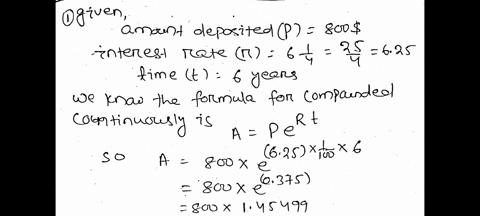 ① given,
amount deposited (P) = 800$
interest rate (r) = 6 1/4 = 25/4 = 6.25
time (t) = 6 years
we know the formula for compounded
continuously is
A = Pe^Rt
so A = 800 × e^(6.25) × 1/100 × 6
= 800 × e^(0.375)
= 800 × 1.45499